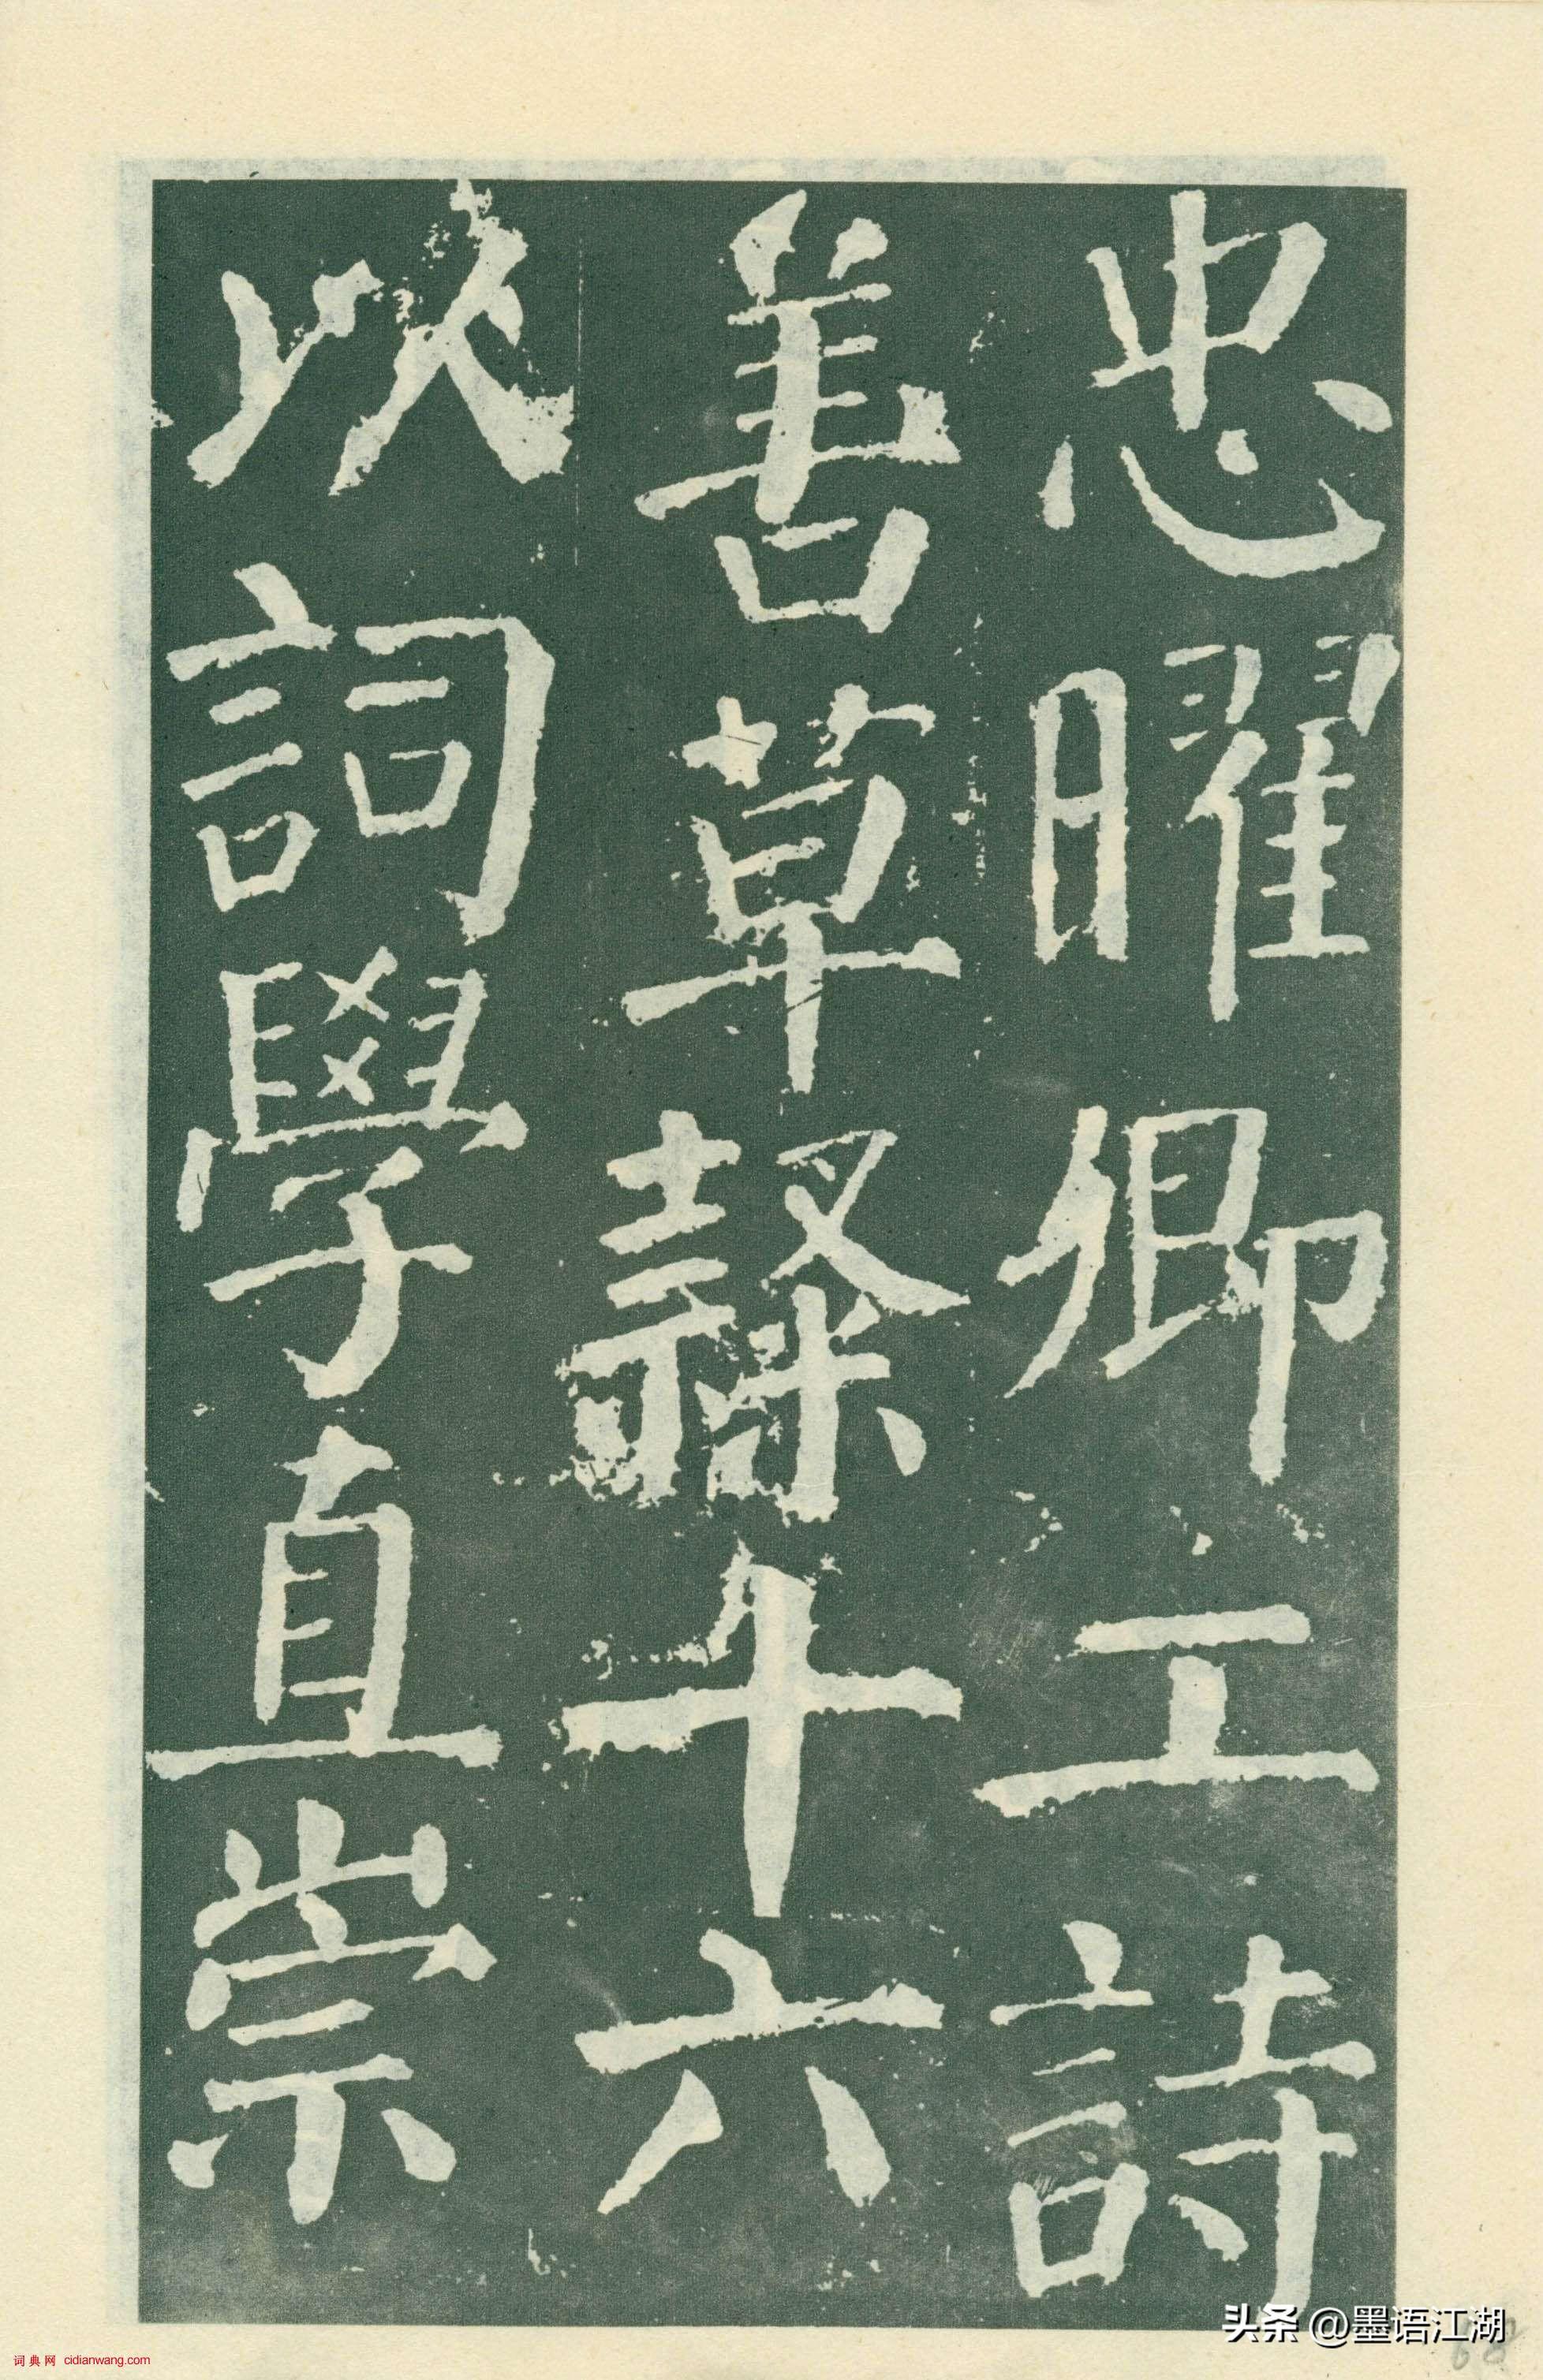 忠曜卿工詩
善草隸十六
以詞學直崇
头条 @墨语江湖
词典网 cidianwang.com